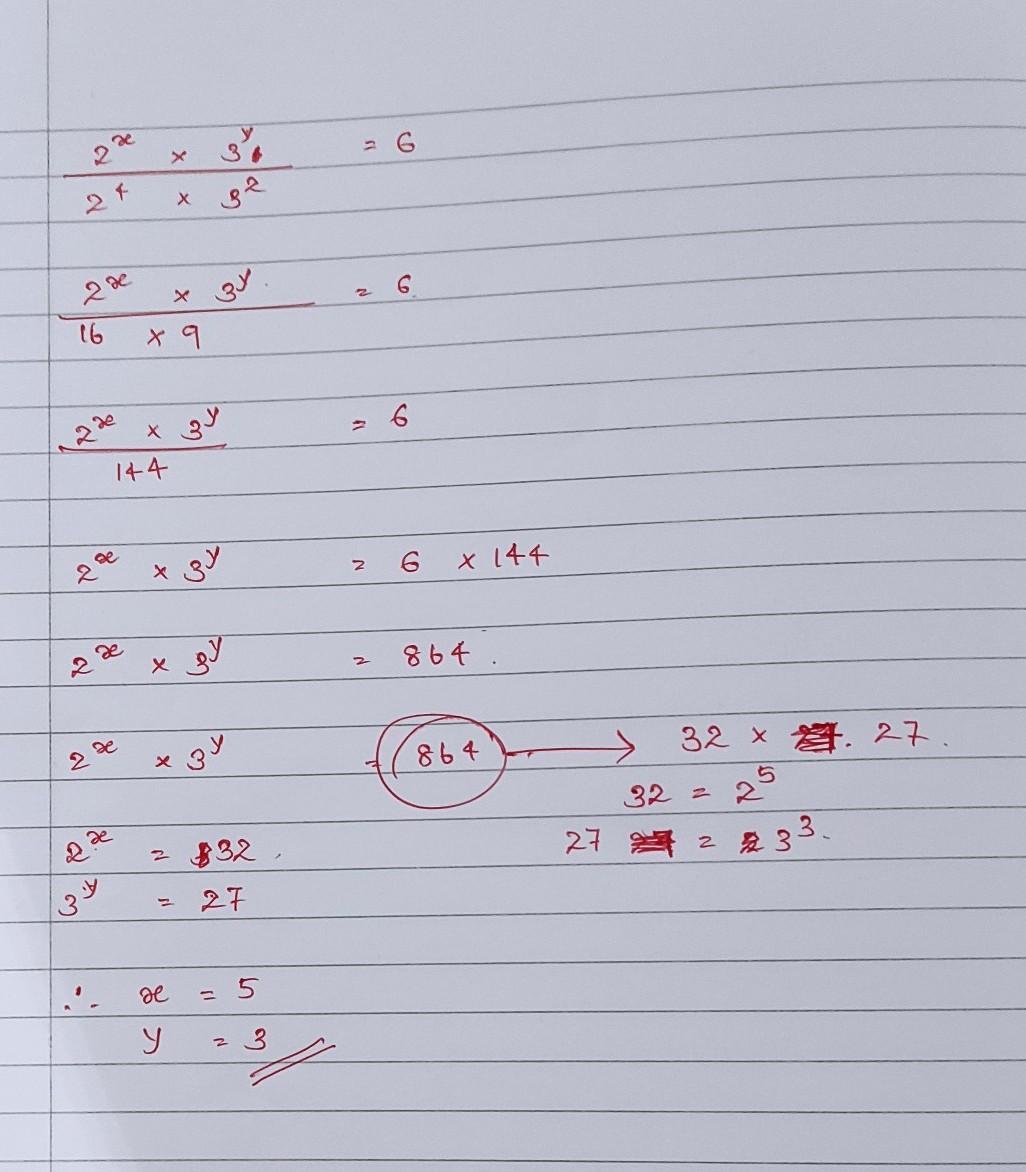 2^x × 3^y = 6
2^4 × 3^2
2^x × 3^y = 6
16 × 9
2^x × 3^y = 6
144
2^x × 3^y = 6 × 144
2^x × 3^y = 864.
2^x × 3^y = 864 → 32 × 27.
32 = 2^5
27 = 3^3.
2^x = 32
3^y = 27
∴ x = 5
y = 3